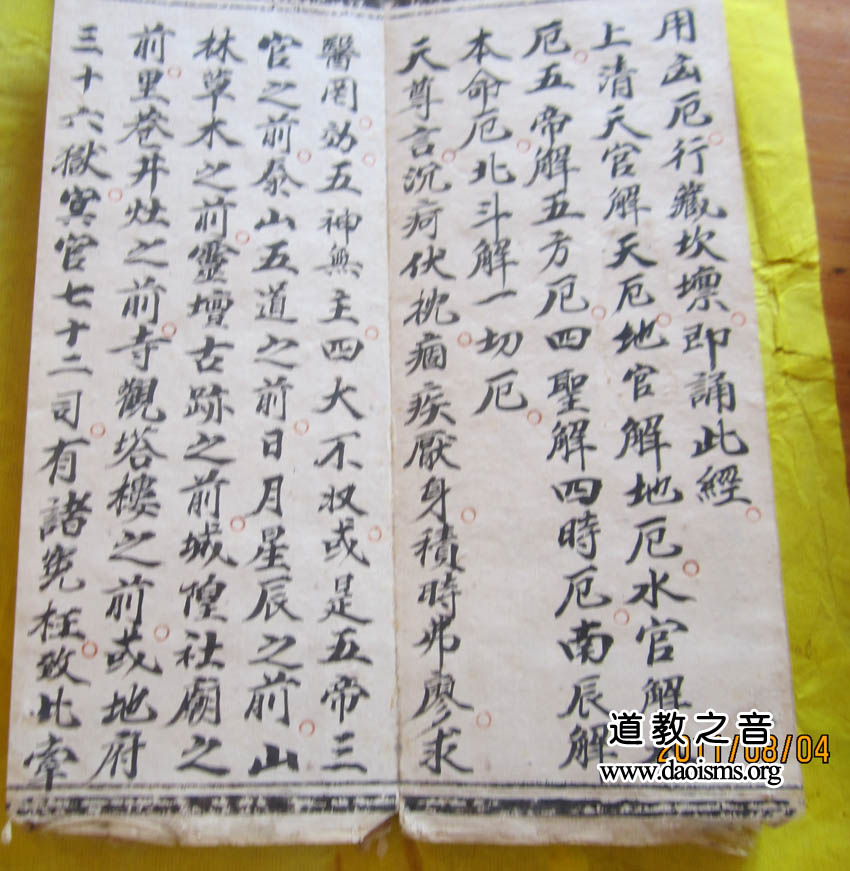 用㐫厄行藏坎壈即誦此經
上清天官解天厄地官解地厄水官解
厄五帝解五方厄四聖解四時厄南辰解
本命厄北斗解一切厄
天尊言沉疴伏枕痼疾厭身積時弗廖求
醫罔効五神無主四大不収或是五帝三
官之前泰山五道之前日月星辰之前山
林草木之前靈壇古跡之前城隍社廟之
前里巷井灶之前寺觀塔樓之前或地府
三十六獄冥官七十二司有諸冤枉致此牽
道教之音
www.daoisms.org
2011/08/04